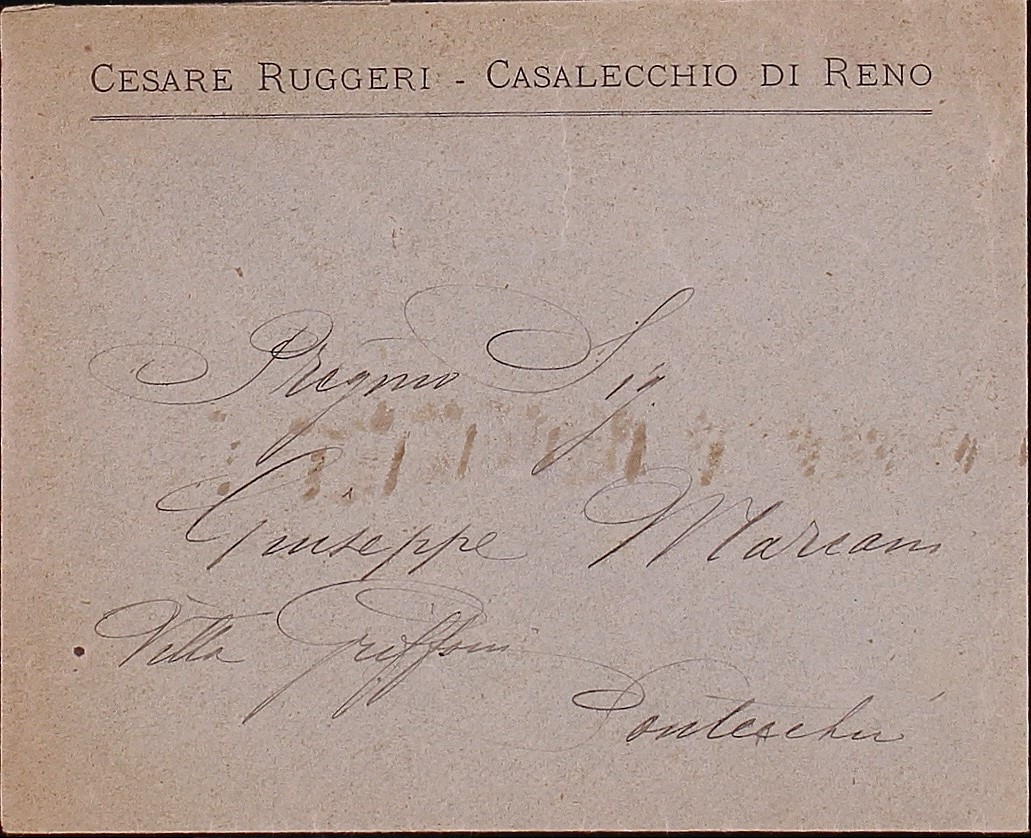 CESARE RUGGERI - CASALECCHIO DI RENO
Pregmo Sig.
Giuseppe Marcani
Villa Griffoni
Pontecchio